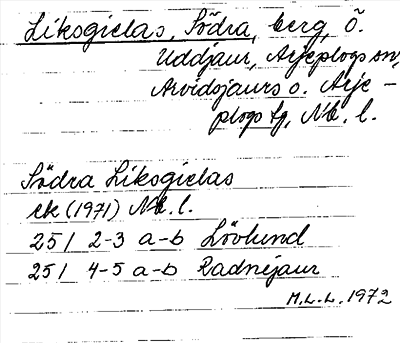 Liksgielas, Södra, berg, ö.
Uddjaur, Arjeplogs sn,
Arvidsjaurs o. Arje-
plogs tg, Nb. l.
Södra Liksgielas
ek (1971) Nb. l.
25 I 2-3 a-b Lövlund
25 I 4-5 a-b Radnejaur
M.L.L. 1972